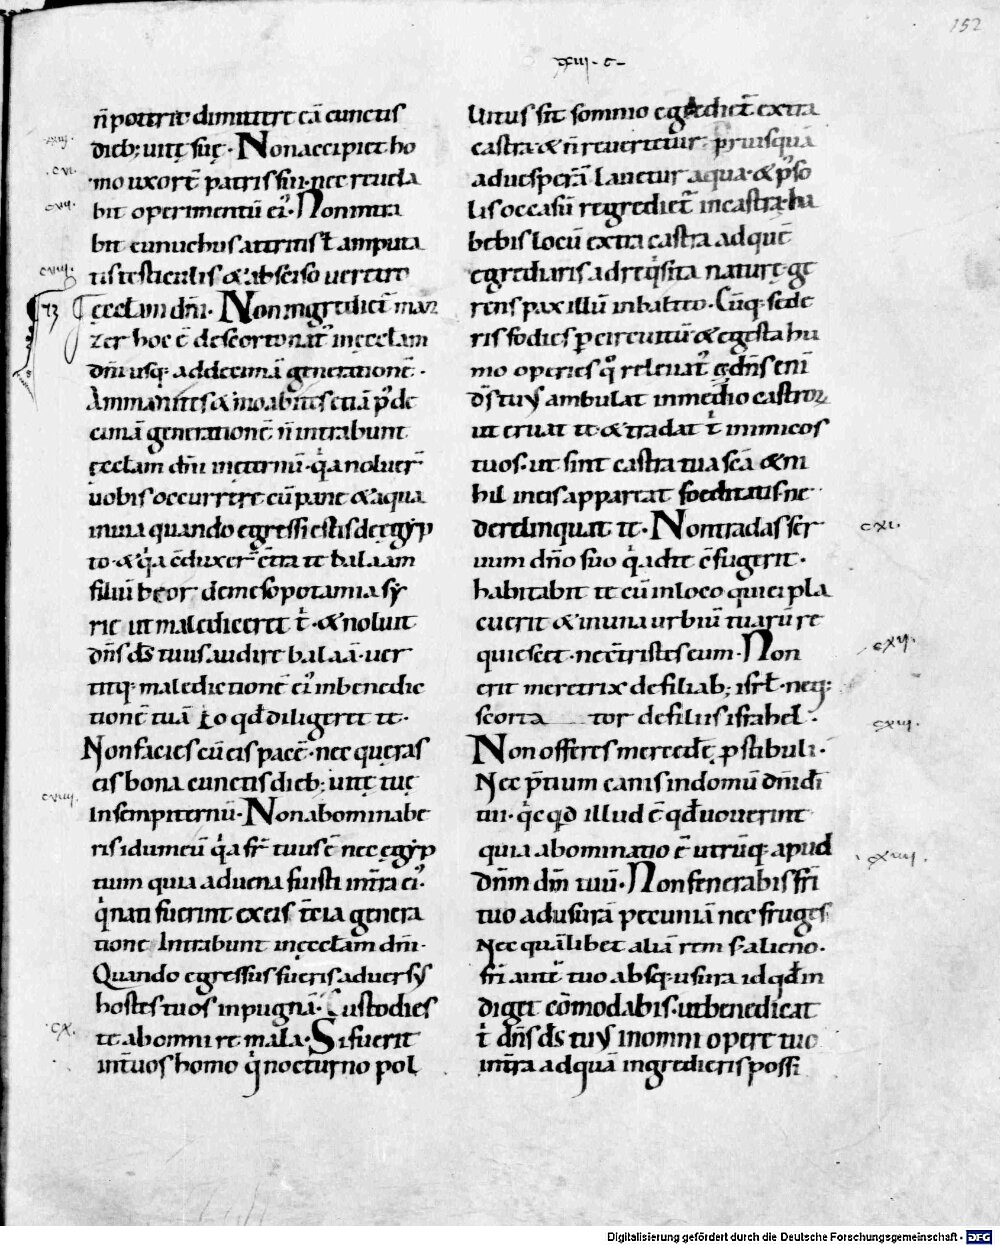 152
xxiii · c
n̄ poterit dimittere eā cunctis
dieb; uitę suę · Non accipiet ho
mo uxorē patris sui · nec reuela
bit operimentū ei᷒ · Non intra
bit eunuchus attritis ł amputa
tis testiculis & absciso ueretro
ęccłam dn̄i · Non ingrediet᷑ man
zer hoc ē de scorto nat᷒ in ęccłam
dn̄i usq; ad decimā generationē ·
Ammanites & moabites etiā p᷒ de
cimā generationē n̄ intrabunt
ęccłam dn̄i in ęternū · qͥa noluer̄
uobis occurrere cū pane & aqua
in uia quando egressi estis de ęgyp
to · & qͥa cōduxer̄ cōtra te balaam
filiū beor de mesopotamia sy
rię ut malediceret t͛ · & noluit
dn̄s ds̄ tuus audire balaā · uer
titq; maledictionē ei᷒ in benedic
tionē tuā eo qd̄ diligeret te ·
Non facies cū eis pacē · nec quęras
eis bona cunctis dieb; uitę tuę
in sempiternū · Non abominabe
ris idumeū qͥa fr̄ tuus ē nec ęgyp
tium quia aduena fuisti in tr̄a ei᷒ ·
qͥ nati fuerint ex eis t̄cia genera
tione intrabunt in ęccłam dn̄i ·
Quando egressus fueris aduersus
hostes tuos in pugnā · Custodies
te ab omni re mala · Si fuerit
int᷑ uos homo qͥ nocturno pol
lutus sit somnio egredict᷑ extra
castra & n̄ reuertetur · priusquā
ad uesperā lauetur aqua · & p᷒ so
lis occasū regrediet᷑ in castra · ha
bebis locū extra castra ad quē
egrediaris ad reqͥsita naturę · ge
rens paxillū in balteo · Cūq; sede
ris fodies p circuitū & egesta hu
mo operies qͦ releuat᷒ es dn̄s eni
ds̄ tuus ambulat in medio castroꝝ
ut eruat te · & tradat t͛ inimicos
tuos · ut sint castra tua sc̄a & ni
hil in eis appareat foeditatis · ne
derelinquat te · Non trades ser
uum dn̄o suo qͥ ad te cōfugerit ·
habitabit tecū in loco qui ei pla
cuerit & in una urbiū tuarū re
quiescet · ne cōtristes eum · Non
erit meretrix de filiab; isrł · neq;
scortator de filiis israhel ·
Non offeres mercedē pstibuli ·
Nec p̄tium canis in domū dn̄i dī
tui · qͥcqͥd illud ē qd̄ uouerint
quia abominatio ē utrūq; apud
dn̄m dm̄ tuū · Non fenerabis frī
tuo ad usurā pecuniā nec fruges
Nec quālibet aliā rem s᷑ alieno ·
frī aut̄ tuo absq; usura id qd̄ in
diget cōmodabis · ut benedicat
t͛ dn̄s ds̄ tuus in omni opere tuo
in tr̄a ad quā ingredieris possi
cvi.
cvii.
cviii.
cviiii.
cx.
cxi.
cxii.
cxiii.
cxiiii.
Digitalisierung gefördert durch die Deutsche Forschungsgemeinschaft - DFG